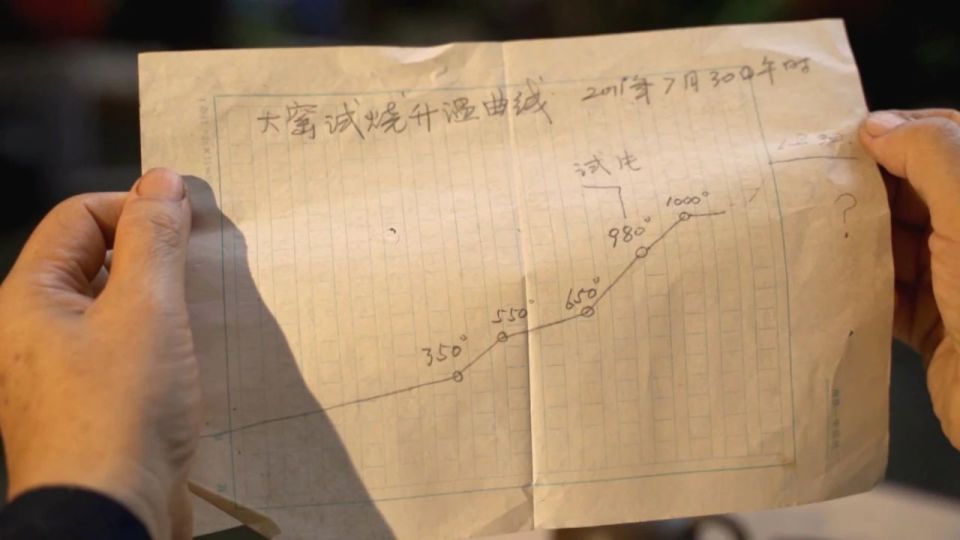 大窑试烧升温曲线 2011年7月30日午时
试火
1000°
980°
650°
550°
350°
?